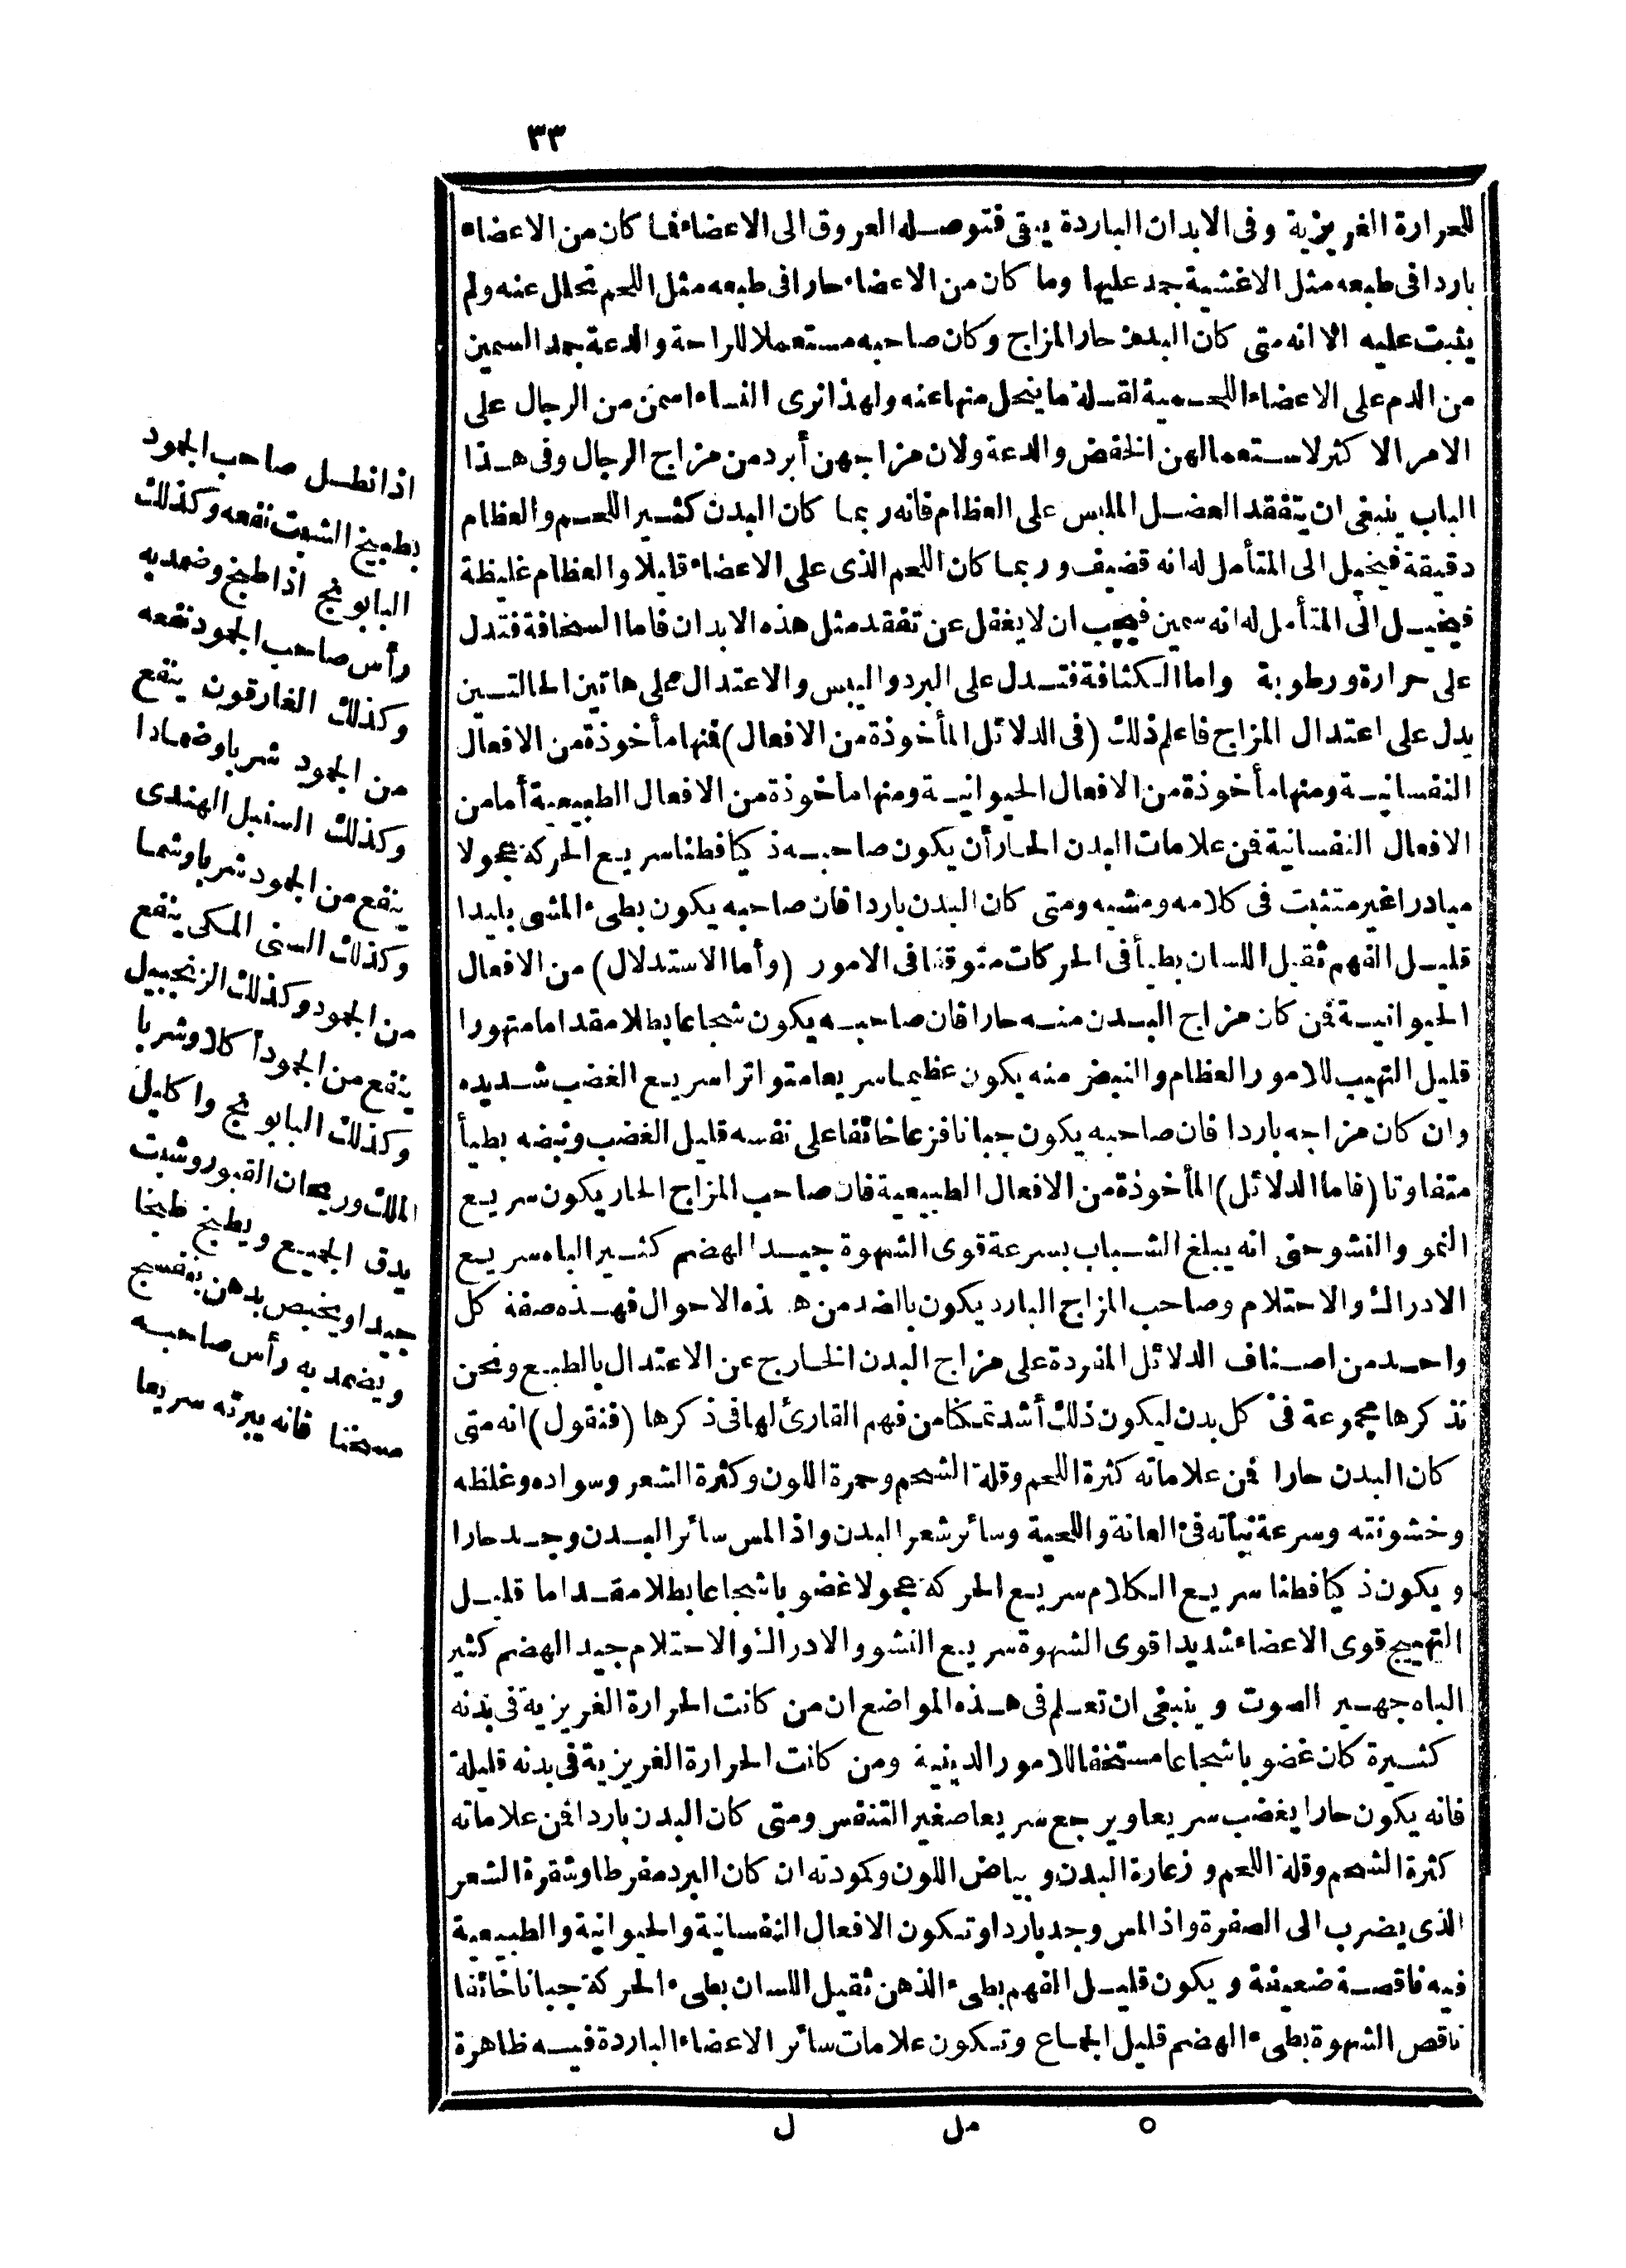 ٣٣
للحرارة الغريزية وفى الابدان الباردة يبقى فتوصله العروق الى الاعضاء فما كان من الاعضاء
باردا فى طبعه مثل الاغشية جمد عليها وما كان من الاعضاء حارا فى طبعه مثل اللحم تحلل عنه ولم
يثبت عليه الا انه متى كان البدن حار المزاج وكان صاحبه مستعملا للراحة والدعة جمد السمين
من الدم على الاعضاء اللحمية لقلة ما ينحل منها عنه ولهذا نرى النساء اسمن من الرجال على
الامر الاكثر لاستعمالهن الخفض والدعة ولان مزاجهن أبرد من مزاج الرجال وفى هذا
الباب ينبغى ان يتفقد العضل الملبس على العظام فانه ربما كان البدن كثير اللحم والعظام
دقيقة فيخيل الى المتأمل له انه قضيف وربما كان اللحم الذى على الاعضاء قليلا والعظام غليظة
فيخيل الى المتأمل له انه سمين فيجب ان لا يغفل عن تفقد مثل هذه الابدان فاما السخافة فتدل
على حرارة ورطوبة واما الكثافة فتدل على البرد واليبس والاعتدال فى هاتين الحالتين
يدل على اعتدال المزاج فاعلم ذلك (فى الدلائل المأخوذة من الافعال) فمنها مأخوذة من الافعال
النفسانية ومنها مأخوذة من الافعال الحيوانية ومنها مأخوذة من الافعال الطبيعية أما من
الافعال النفسانية فمن علامات البدن الحار أن يكون صاحبه ذكيا فطنا سريع الحركة عجولا
مبادرا غير متثبت فى كلامه ومشيه ومتى كان البدن باردا فان صاحبه يكون بطىء المشى بليدا
قليل الفهم ثقيل اللسان بطيأ فى الحركات متوقفا فى الامور (وأما الاستدلال) من الافعال
الحيوانية فمن كان مزاج البدن منه حارا فان صاحبه يكون شجاعا بطلا مقداما متهورا
قليل التهيب للامور العظام والنبض منه يكون عظيما سريعا متواترا سريع الغضب شديده
وان كان مزاجه باردا فان صاحبه يكون جبانا فزعا خائفا على نفسه قليل الغضب ونبضه بطيأ
متفاوتا (فاما الدلائل) المأخوذة من الافعال الطبيعية فان صاحب المزاج الحار يكون سريع
النمو والنشو حتى انه يبلغ الشباب بسرعة قوى الشهوة جيد الهضم كثير الباه سريع
الادراك والاحتلام وصاحب المزاج البارد يكون بالضد من هذه الاحوال فهذه صفة كل
واحد من اصناف الدلائل المفردة على مزاج البدن الخارج عن الاعتدال بالطبع ونحن
نذكرها مجموعة فى كل بدن ليكون ذلك أشد تمكنا من فهم القارئ لها فى ذكرها (فنقول) انه متى
كان البدن حارا فمن علاماته كثرة اللحم وقلة الشحم وحمرة اللون وكثرة الشعر وسواده وغلظه
وخشونته وسرعة نباته فى العانة واللحية وسائر شعر البدن واذا لمس سائر البدن وجد حارا
ويكون ذكيا فطنا سريع الكلام سريع الحركة عجولا غضوبا شجاعا بطلا مقداما قليل
التهيج قوى الاعضاء شديدا قوى الشهوة سريع النشو والادراك والاحتلام جيد الهضم كثير
الباه جهير الصوت وينبغى ان تعلم فى هذه المواضع ان من كانت الحرارة الغريزية فى بدنه
كثيرة كان غضوبا شجاعا مستخفا للامور الدينية ومن كانت الحرارة الغريزية فى بدنه قليلة
فانه يكون حارا يغضب سريعا ويرجع سريعا صغير التنفس ومتى كان البدن باردا فمن علاماته
كثرة الشحم وقلة اللحم وزعارة البدن وبياض اللون وكمودته ان كان البرد مفرطا وشقرة الشعر
الذى يضرب الى الصفرة واذا لمس وجد باردا وتكون الافعال النفسانية والحيوانية والطبيعية
فيه ناقصة ضعيفة ويكون قليل الفهم بطىء الذهن ثقيل اللسان بطىء الحركة جبانا خائفا
ناقص الشهوة بطىء الهضم قليل الجماع وتكون علامات سائر الاعضاء الباردة فيه ظاهرة
٥ مل ل
اذا نطل صاحب الجمود
بطبيخ الشبت نفعه وكذلك
البابونج اذا طبخ وضمد به
رأس صاحب الجمود نفعه
وكذلك الغارقون ينفع
من الجمود شربا وضمادا
وكذلك السنبل الهندى
ينفع من الجمود شربا وشما
وكذلك السنى المكى ينفع
من الجمود وكذلك الزنجبيل
ينفع من الجمود أكلا وشربا
وكذلك البابونج واكليل
الملك وريحان القبور وشبت
يدق الجميع ويطبخ طبخا
جيدا ويخبص بدهن بنفسج
ويضمد به رأس صاحبه
مسخنا فانه يبرئه سريعا